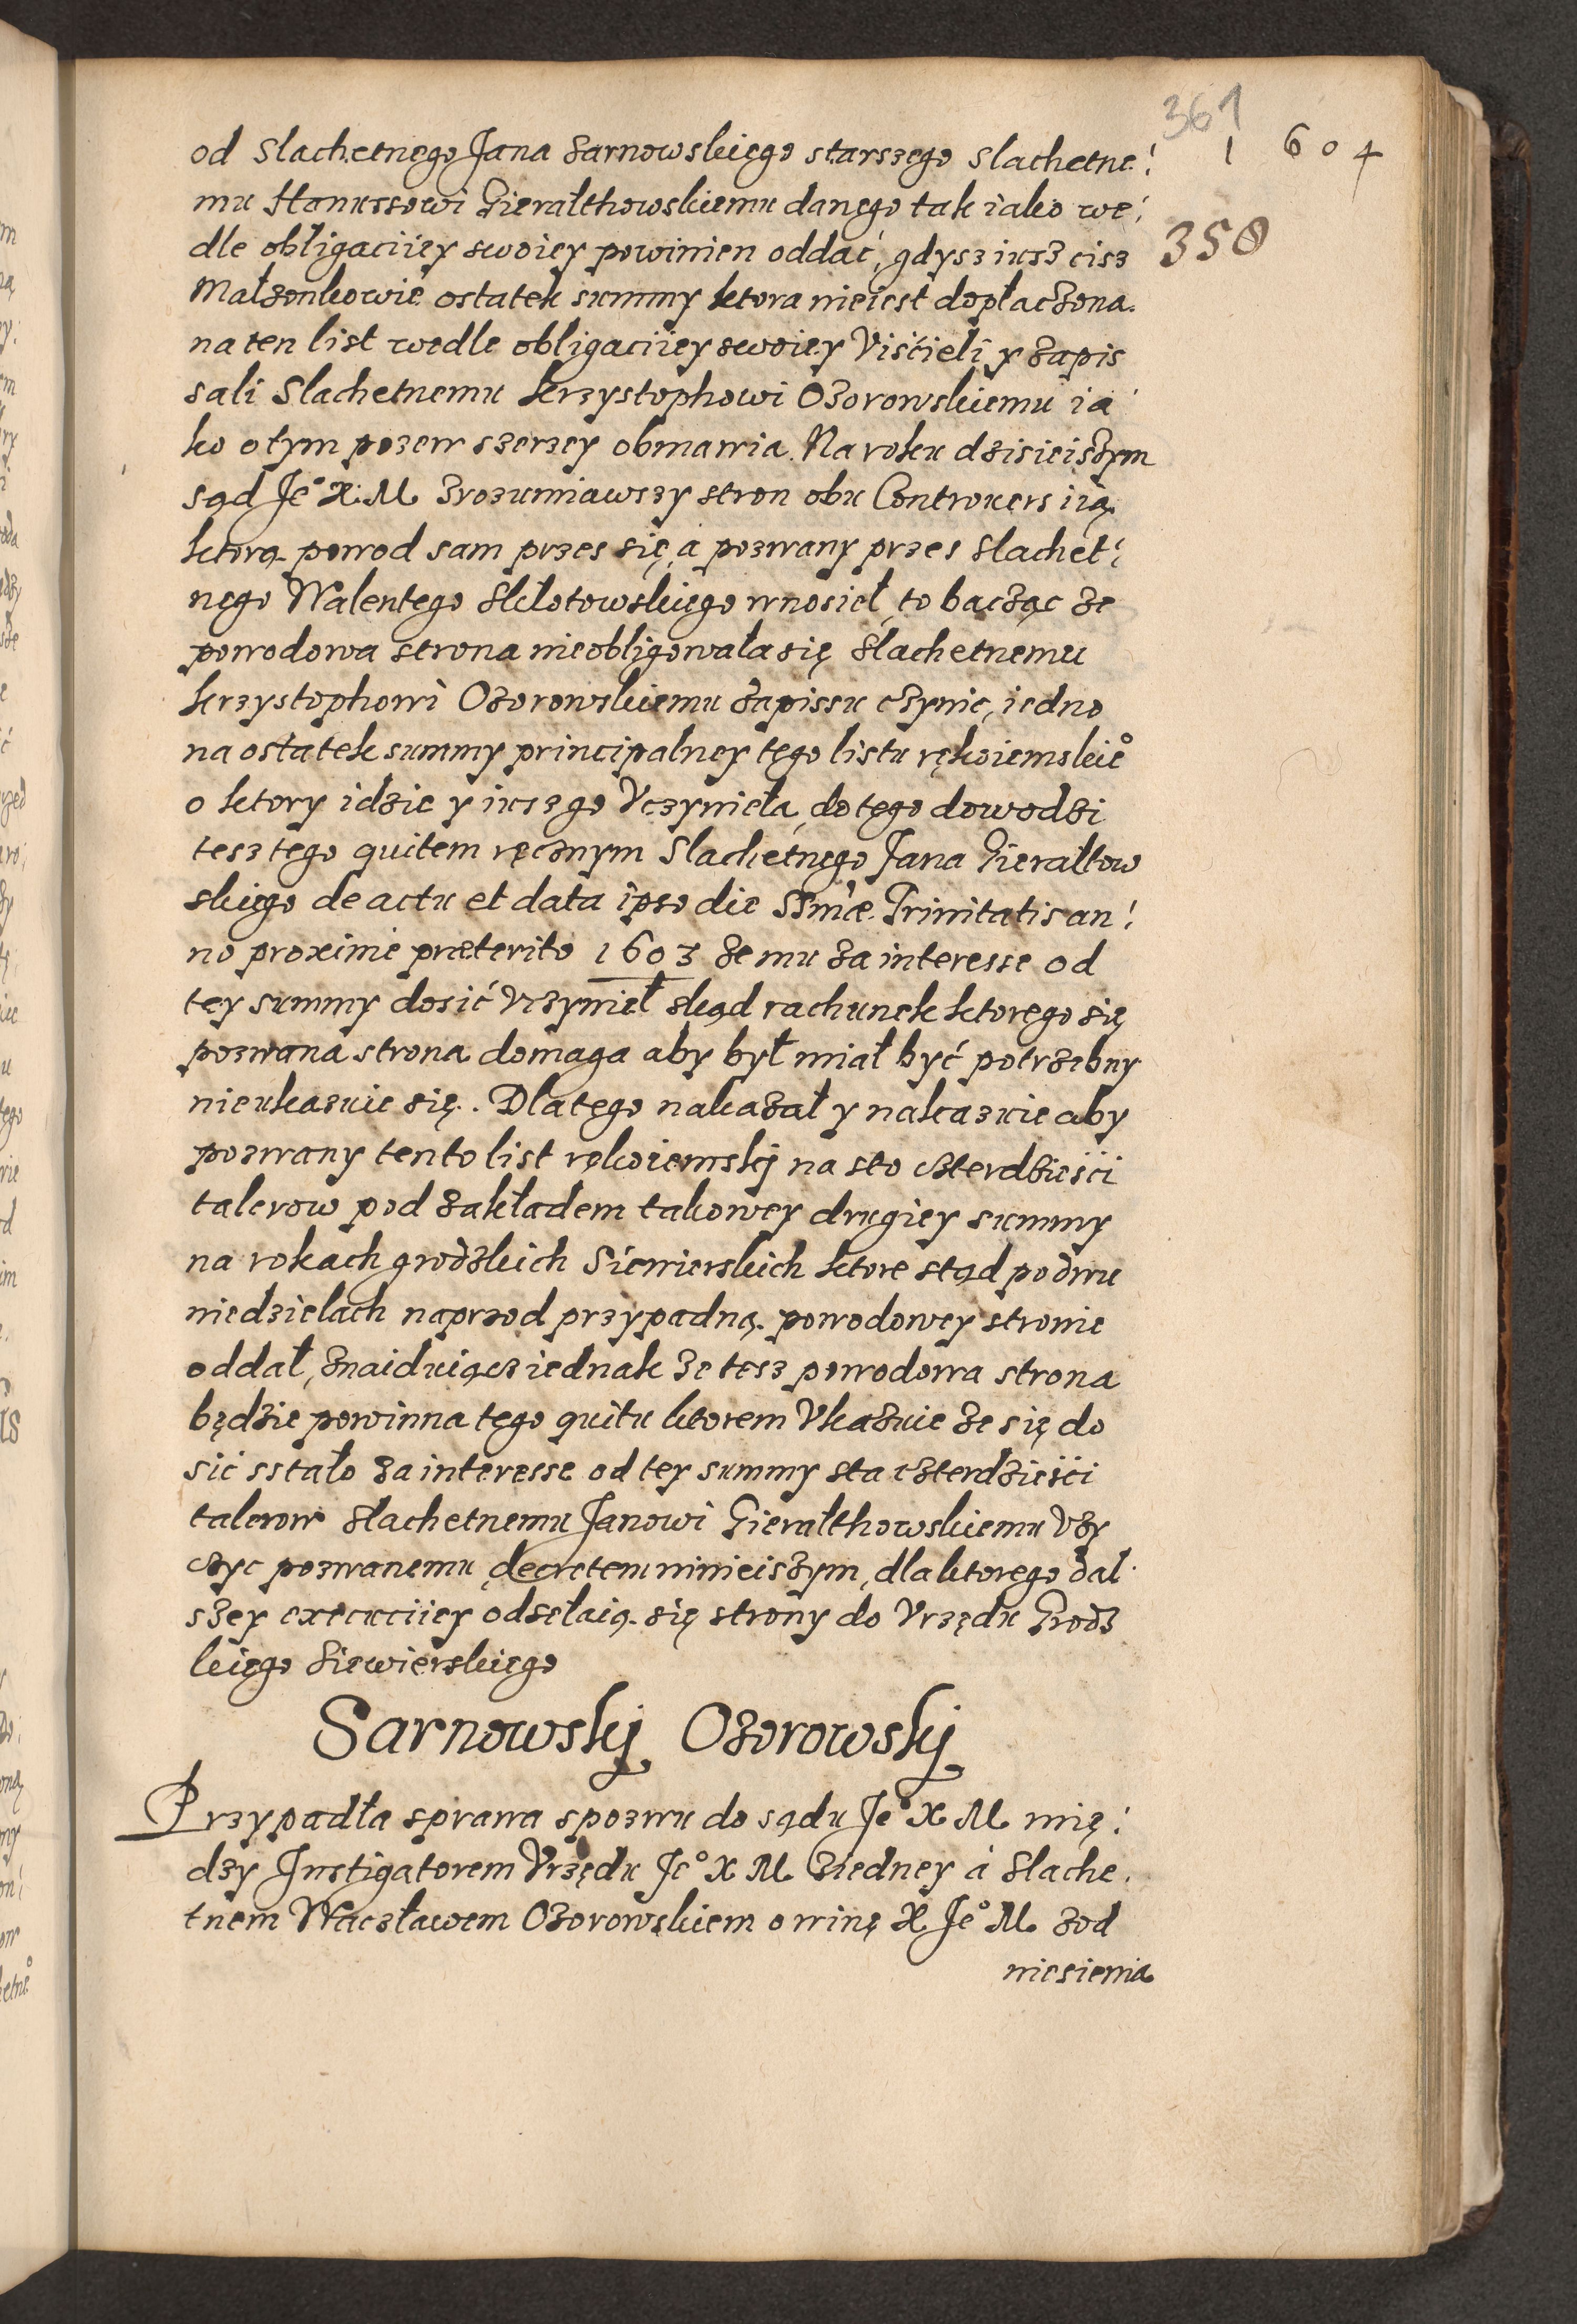 361
1 6 0 4
350
od Slachetnego Jana Sarnowskiego starszego slachetne:
mu Hanussowi Gierałthowskiemu danego tak iako we:
dle obligaciiey swoiey powinien oddać, gdysz iusz cisz
Małzonkowie ostatek summy ktora nieiest dopłaczona
na ten list wedle obligaciiey swoiey Viścieli y zapis
sali Slachetnemu krzystophowi Ozorowskiemu ia
ko o tym pozew szerzey obmawia. Na roku dzisieiszym
sąd Je° X. M zrozumiawszy stron obu Controuersiią
ktorą powod sam przes się, a pozwany przes slachet:
nego Walentego Skłotowskiego wnosieł, to bacząc ze
powodowa strona nieobligowała się slachetnemu
krzystophowi Ozorowskiemu zapissu czynic, iedno
na ostatek summy principalney tego listu rękoiemskie°
o ktory idzie y iusz go Vczynieła, do tego dowodzi
tesz tego quitem ręcznym Slachetnego Jana Gierałtow
skiego de actu et data ipso die SSmæ Trinitatis an:
no proxime præterito 1603 ze mu za interesse od
tey summy dosić Vczynieł skąd rachunek ktorego się
pozwana strona domaga aby był miał być potrzebny
nieukazuie się. Dlatego nakazał y nakazuie aby
pozwany tento list rękoiemskj na sto czterdzieści
talerow pod zakładem takowey drugiey summy
na rokach grodzkich Siewierskich ktore stąd po dwu
niedzielach naprzod przypadną powodowey stronie
oddał, znaiduiącz iednak ze tesz powodowa strona
będzie powinna tego quitu ktorem Vkazuie ze się do
sić sstało za interesse od tey summy sta czterdzieści
talerow slachetnemu Janowi Gierałthowskiemu Vzy
czyc pozwanemu, decretem ninieiszym, dla ktorego dal
szey executiiey odsełaią się strony do Vrzędu Grodz
kiego Siewierskiego
Sarnowskj Ozorowskj
Przypadła sprawa s pozwu do sądu Je° X M mię:
dzy Instigatorem Vrzędu Je° X M ziedney á slache:
tnem Waczławem Ozorowskiem o winę X Je° M zod
niesienia